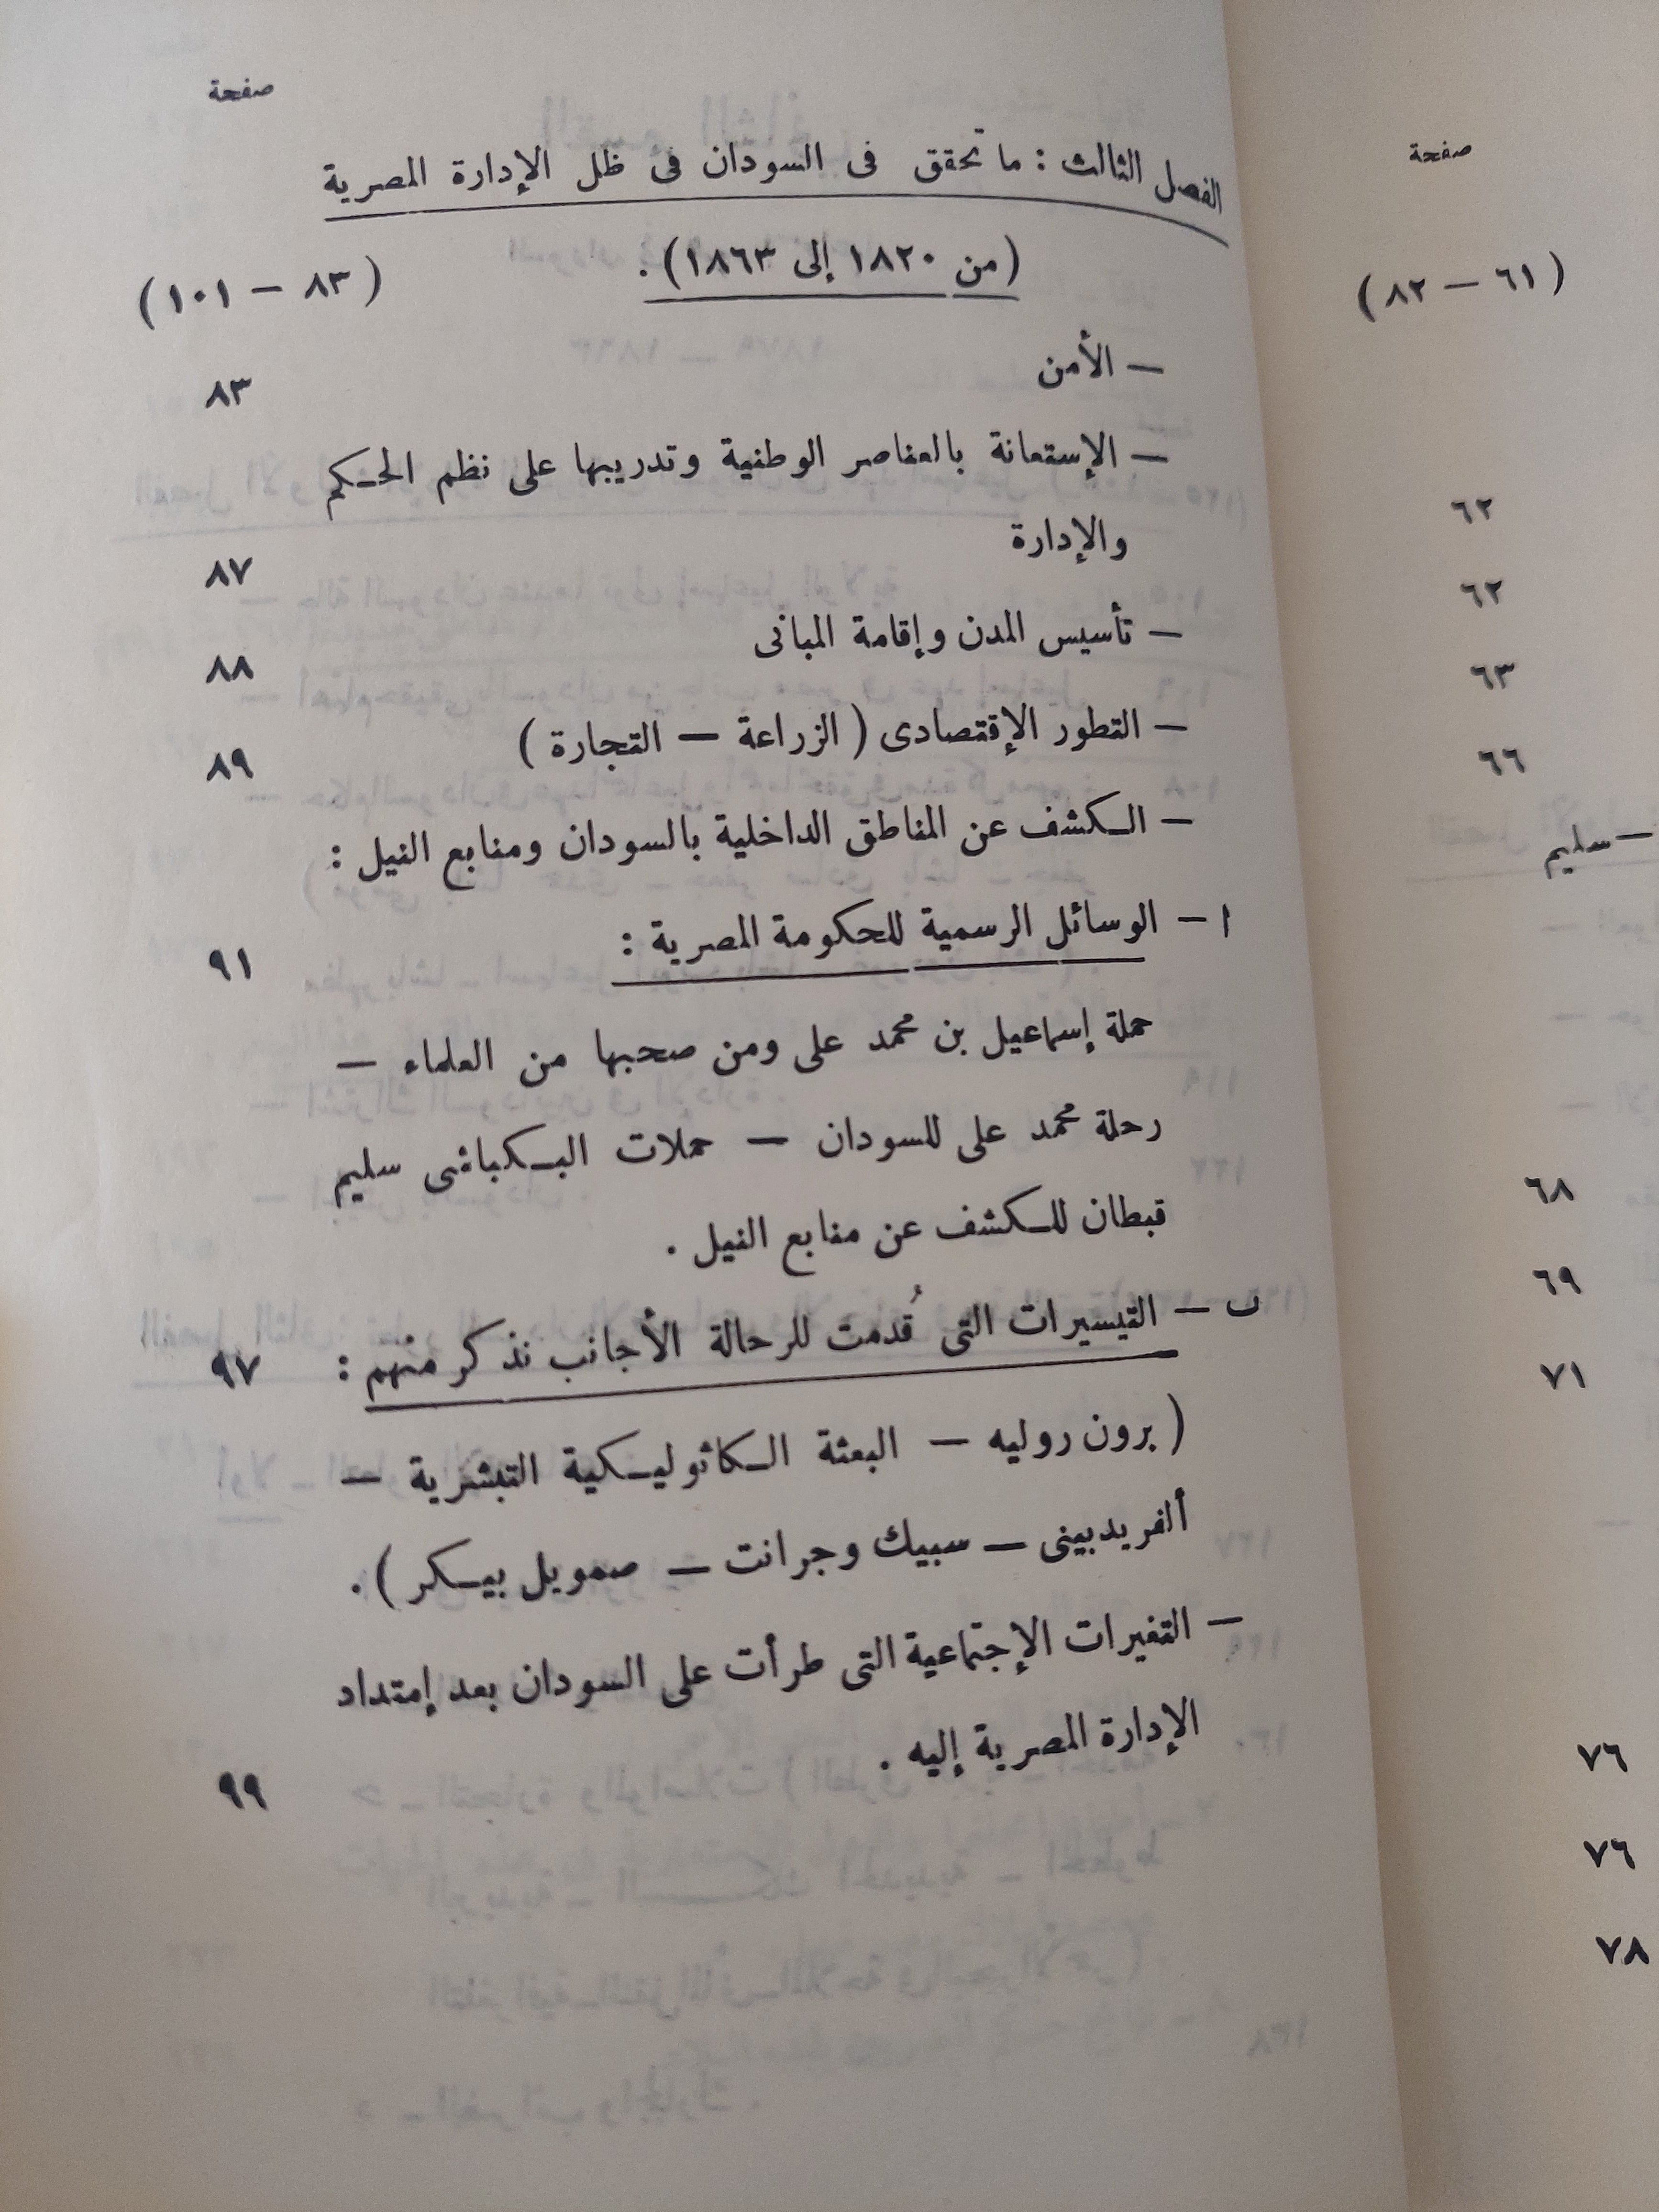 صفحة
(٦١ — ٨٢)
٦٢
٦٢
٦٣
٦٦
— سليم
٦٨
٦٩
٧١
٧٦
٧٦
٧٨
صفحة
الفصل الثالث : ما تحقق فى السودان فى ظل الإدارة المصرية
(من ١٨٢٠ إلى ١٨٦٣) . (٨٣ — ١٠١)
— الأمن ٨٣
— الإستعانة بالعناصر الوطنية وتدريبها على نظم الحكم
والإدارة ٨٧
— تأسيس المدن وإقامة المبانى ٨٨
— التطور الإقتصادى ( الزراعة — التجارة ) ٨٩
— الكشف عن المناطق الداخلية بالسودان ومنابع النيل :
ا — الوسائل الرسمية للحكومة المصرية : ٩١
حملة إسماعيل بن محمد على ومن صحبها من العلماء —
رحلة محمد على للسودان — حملات البكباشى سليم
قبطان للكشف عن منابع النيل .
ب — التيسيرات التى قُدمت للرحالة الأجانب نذكر منهم : ٩٧
( برون روليه — البعثة الكاثوليكية التبشرية —
ألفريد بينى — سبيك وجرانت — صمويل بيكر ) .
— التغيرات الإجتماعية التى طرأت على السودان بعد إمتداد
الإدارة المصرية إليه . ٩٩